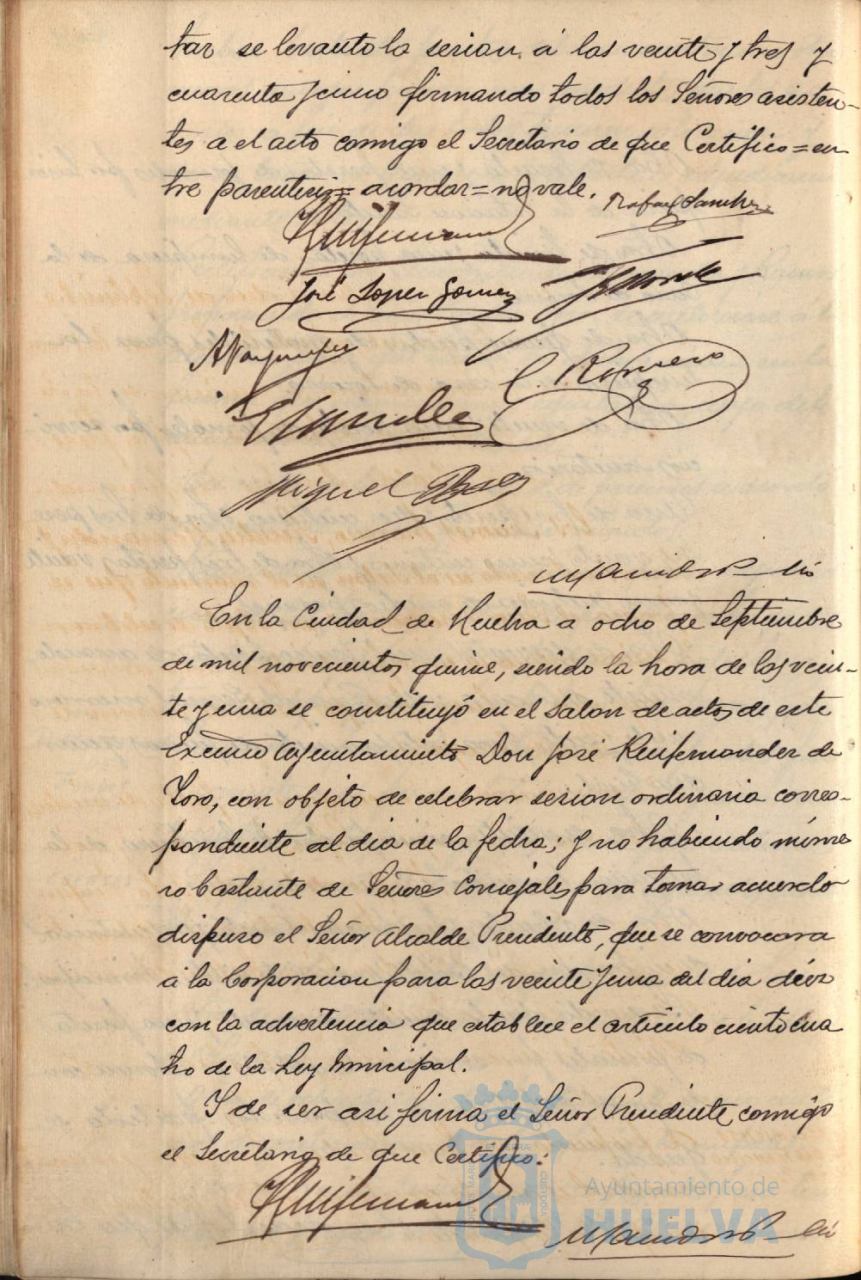 tar se levanto la sesion á las veinte y tres y
cuarenta y cinco firmando todos los Señores asisten-
tes a el acto comigo el Secretario de que Certifico = en-
tre parentesis = acordar = no vale.
Rafael Sanchez
José Lopez Gomez
C. Romero
Miguel Baez
En la Ciudad de Huelva á ocho de Septiembre
de mil novecientos quince, siendo la hora de las vein-
te y una se constituyó en el Salon de actos de este
Excmo Ayuntamiento Don José Ruifernandez de
Toro, con objeto de celebrar sesion ordinaria corres-
pondiente al dia de la fecha; y no habiendo núme
ro bastante de Señores Concejales para tomar acuerdo
dispuso el Señor Alcalde Presidente, que se convocara
á la Corporacion para las veinte y una del dia diez
con la advertencia que establece el artículo ciento cua
tro de la Ley Municipal.
Y de ser asi firma el Señor Presidente comigo
el Secretario de que Certifico:
Ayuntamiento de
HUELVA